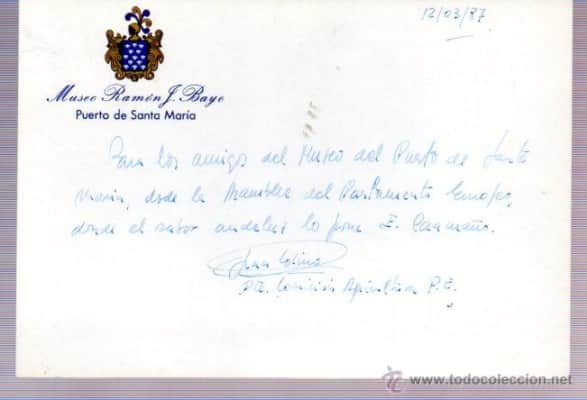 12/03/87
Museo Ramón J. Bayo
Puerto de Santa María
Para los amigos del Museo del Puerto de Santa
María, desde la Asamblea del Parlamento Europeo,
donde el sabor andaluz lo pone E. Caamaño.
Juan Colino
Comisión Agricultura P.E.
www.todocoleccion.net